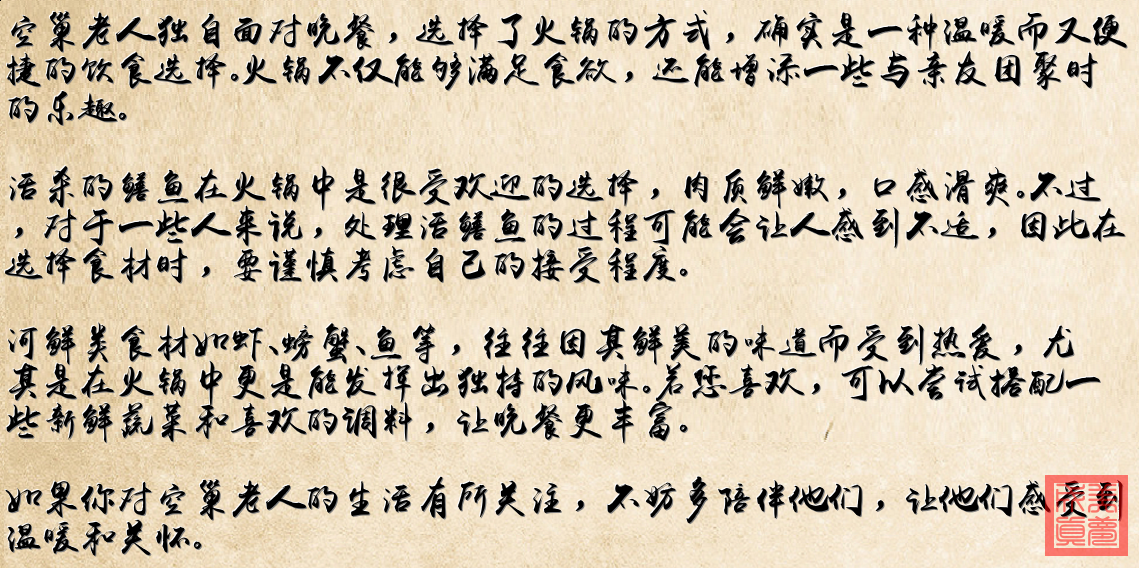 空巢老人独自面对晚餐，选择了火锅的方式，确实是一种温暖而又便
捷的饮食选择。火锅不仅能够满足食欲，还能增添一些与亲友团聚时
的乐趣。
活杀的鳝鱼在火锅中是很受欢迎的选择，肉质鲜嫩，口感滑爽。不过
，对于一些人来说，处理活鳝鱼的过程可能会让人感到不适，因此在
选择食材时，要谨慎考虑自己的接受程度。
河鲜类食材如虾、螃蟹、鱼等，往往因其鲜美的味道而受到热爱，尤
其是在火锅中更是能发挥出独特的风味。若您喜欢，可以尝试搭配一
些新鲜蔬菜和喜欢的调料，让晚餐更丰富。
如果你对空巢老人的生活有所关注，不妨多陪伴他们，让他们感受到
温暖和关怀。